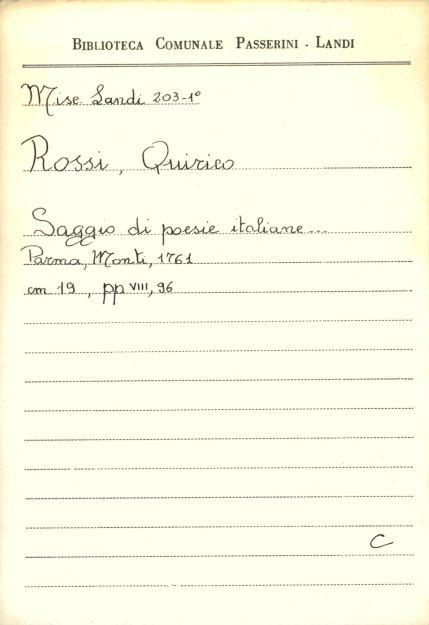 BIBLIOTECA COMUNALE PASSERINI - LANDI
Misc Landi 203-1°
Rossi, Quirico
Saggio di poesie italiane...
Parma, Monti, 1761
cm 19, pp VIII, 96
C